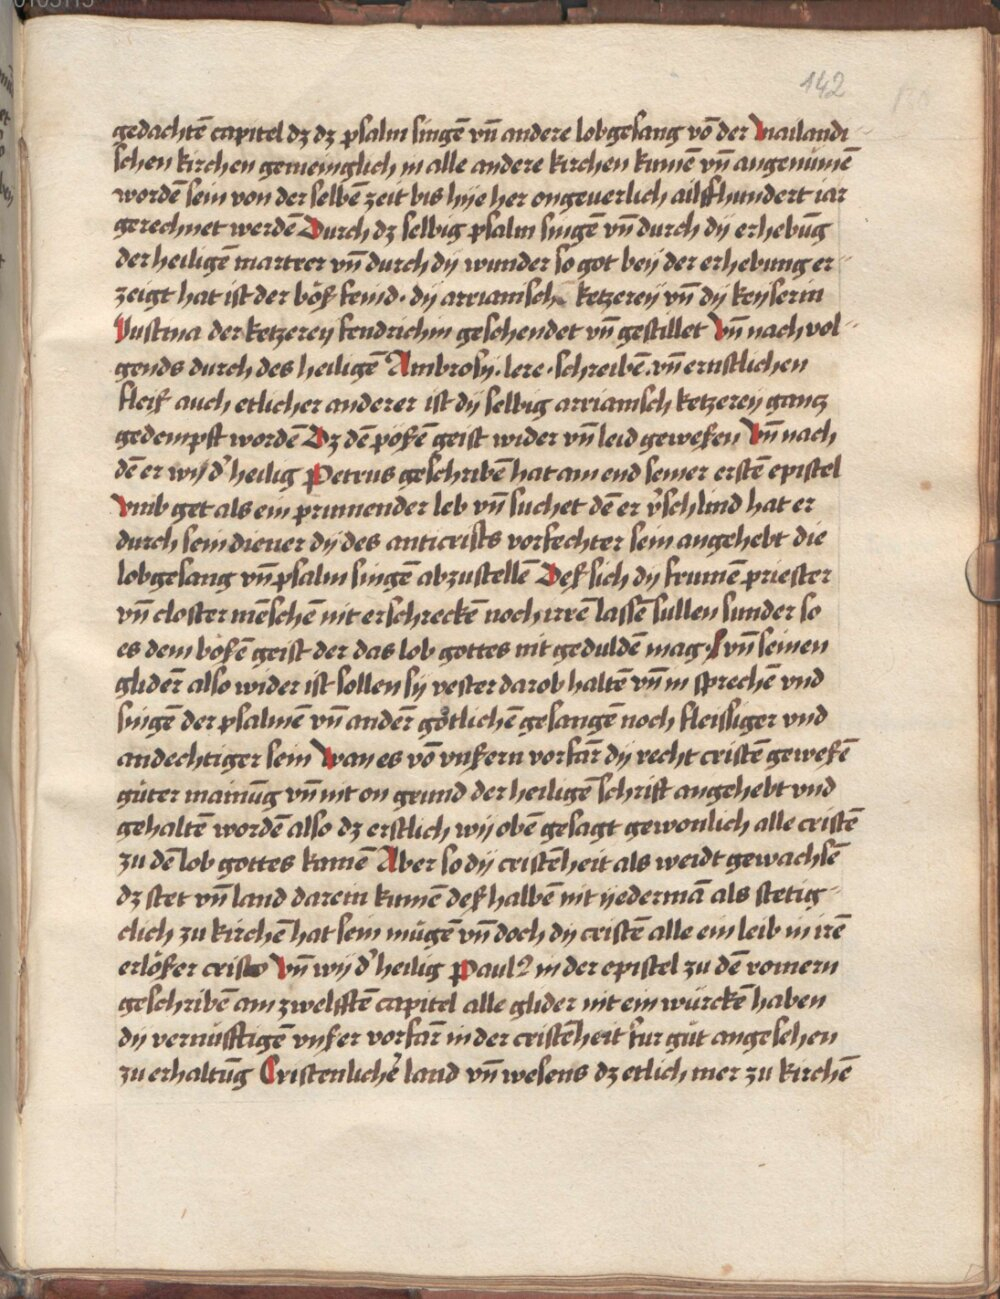 142
gedachtē capitel dz dz psalm singē vn̄ andere lobgesang vō der Mailandi-
schen kirchen gemeinglich in alle andere kirchen kumē vn̄ angenūmē
wordē sein von der selbē zeit bis hije her ongeuerlich ailffhundert iar
gerechnet werdē Durch dz selbig psalm singē vn̄ durch dij erhebūg
der heiligē martrer vn̄ durch dij wunder so got beij der erhebung er-
zeigt hat ist der böß feind · dij arrianisch ketzereij vn̄ dij keyserin
Iustina der ketzereij fendrichin geschendet vn̄ gestillet Vn̄ nach vol-
gends durch des heiligē Ambrosij · lere · schreibē · vn̄ ernstlichen
fleiß auch etlicher anderer ist dij selbig arrianisch ketzereij gantz
gedempft wordē Dz dē pößē geist wider vn̄ leid geweßen Vn̄ nach
dē er wij d' heilig Petrus geschribē hat am end seiner erstē epistel
Vmb get als ein prummender leb vn̄ suchet dē er v'schlind hat er
durch sein diener dij des anticrists vorfechter sein angehebt die
lobgesang vn̄ psalm singē abzustellē Deß sich dij frumē priester
vn̄ closter mēschē nit erschreckē noch irrē lassē sullen sunder so
es dem bößē geist der das lob gottes nit geduldē mag · vn̄ seinen
glider̄ also wider ist sollen sij vester darob haltē vn̄ in sprechē vnd
singē der psalmē vn̄ ander̄ götlichē gesangē noch fleissiger vnd
andechtiger sein Wan es vō vnßern vorfar̄ dij recht cristē geweßē
güter mainūg vn̄ nit on grund der heiligē schrift angehebt vnd
gehaltē wordē also dz erstlich wij obē gesagt gewonlich alle cristē
zu dē lob gottes kamē Aber so dij cristēheit als weidt gewachsē
dz stet vn̄ land darein kumē deßhalbē nit ijedermā als stetig-
clich zu kirchē hat sein mügē vn̄ doch dij cristē alle ein leib in irē
erlößer cristo Vn̄ wij d' heilig Paul9 in der epistel zu dē romern
geschribē am zwelfftē capitel alle glider nit ein würckē haben
dij vernüfftigē vnßer vorfar̄ in der cristēheit für güt angesehen
zu erhaltūg Cristenlicher̄ land vn̄ wesens dz etlich mer zu kirchē